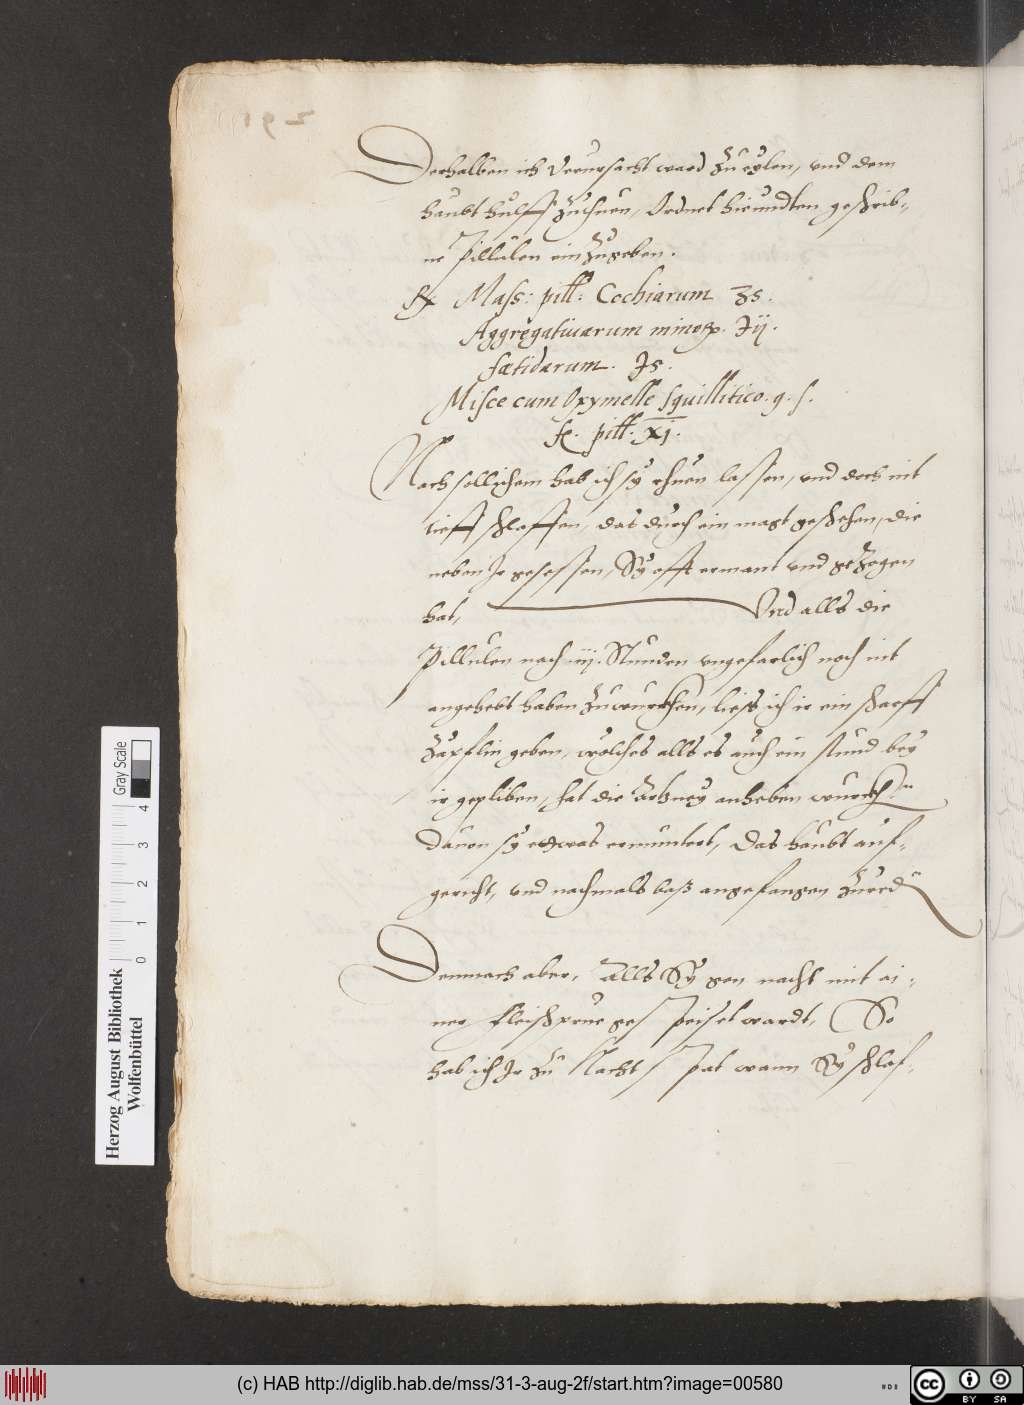 Derhalben ich verursacht ward zu eylen, und dem
haubt hulff zuthuen, Ordnet hieundten geschrib-
ne Pillulen einzugeben.
℞ Mass: pill: Cochiarum ʒs.
Aggregatiuarum minorꝝ. ℈ij.
fætidarum. ℈s.
Misce cum Oxymelle squillitico. q. s.
fc. pill. xj.
Nach sollichem hab ich sy rhuen lassen, und doch nit
tieff schlaffen, das durch ein magt geschehen, die
neben Ir gesessen, Sy offt ermant und gezogen
hat, Und alls die
Pillulen nach iij. Stunden ungefarlich noch nit
angehebt haben zuwurckhen, liess ich ir ein scharff
Zäpflin geben, welches alls es auch ein stund bey
ir gepliben, hat die Artzney anheben wurckhen
Dauon sy etwas ermuntert, Das haubt auf-
gericht, und nachmals bass angefangen zu redn
Demnach aber, Alls Sy gen nacht mit ai-
ner fleischprue gespeiset wardt, So
hab ich Ir zu Nacht spat wann Sy schlaf-
Herzog August Bibliothek
Wolfenbüttel
Gray Scale
0 1 2 3 4
(c) HAB http://diglib.hab.de/mss/31-3-aug-2f/start.htm?image=00580
cc BY SA